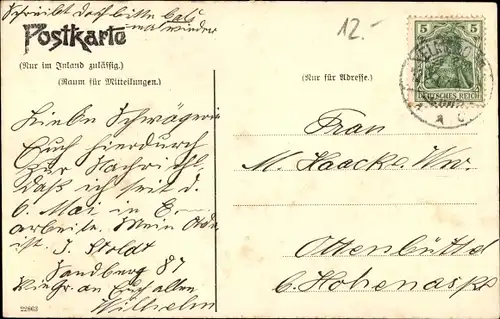 Schreibt doch bitte bald
mal wieder
12.-
Postkarte
(Nur im Inland zulässig.)
(Raum für Mitteilungen.)
(Nur für Adresse.)
5 5
DEUTSCHES REICH
Liebe Schwägerin
Euch hierdurch
zur Nachricht
daß ich seit d.
6. Mai in E.
arbeite. Mein Adr.
ist. J. Stoldt
Sandberg 87
Vielgr. an Euch allen
Wilhelm
Frau
M. Haacke Ww.
Ottenbüttel
b. Hohenaspe
22863